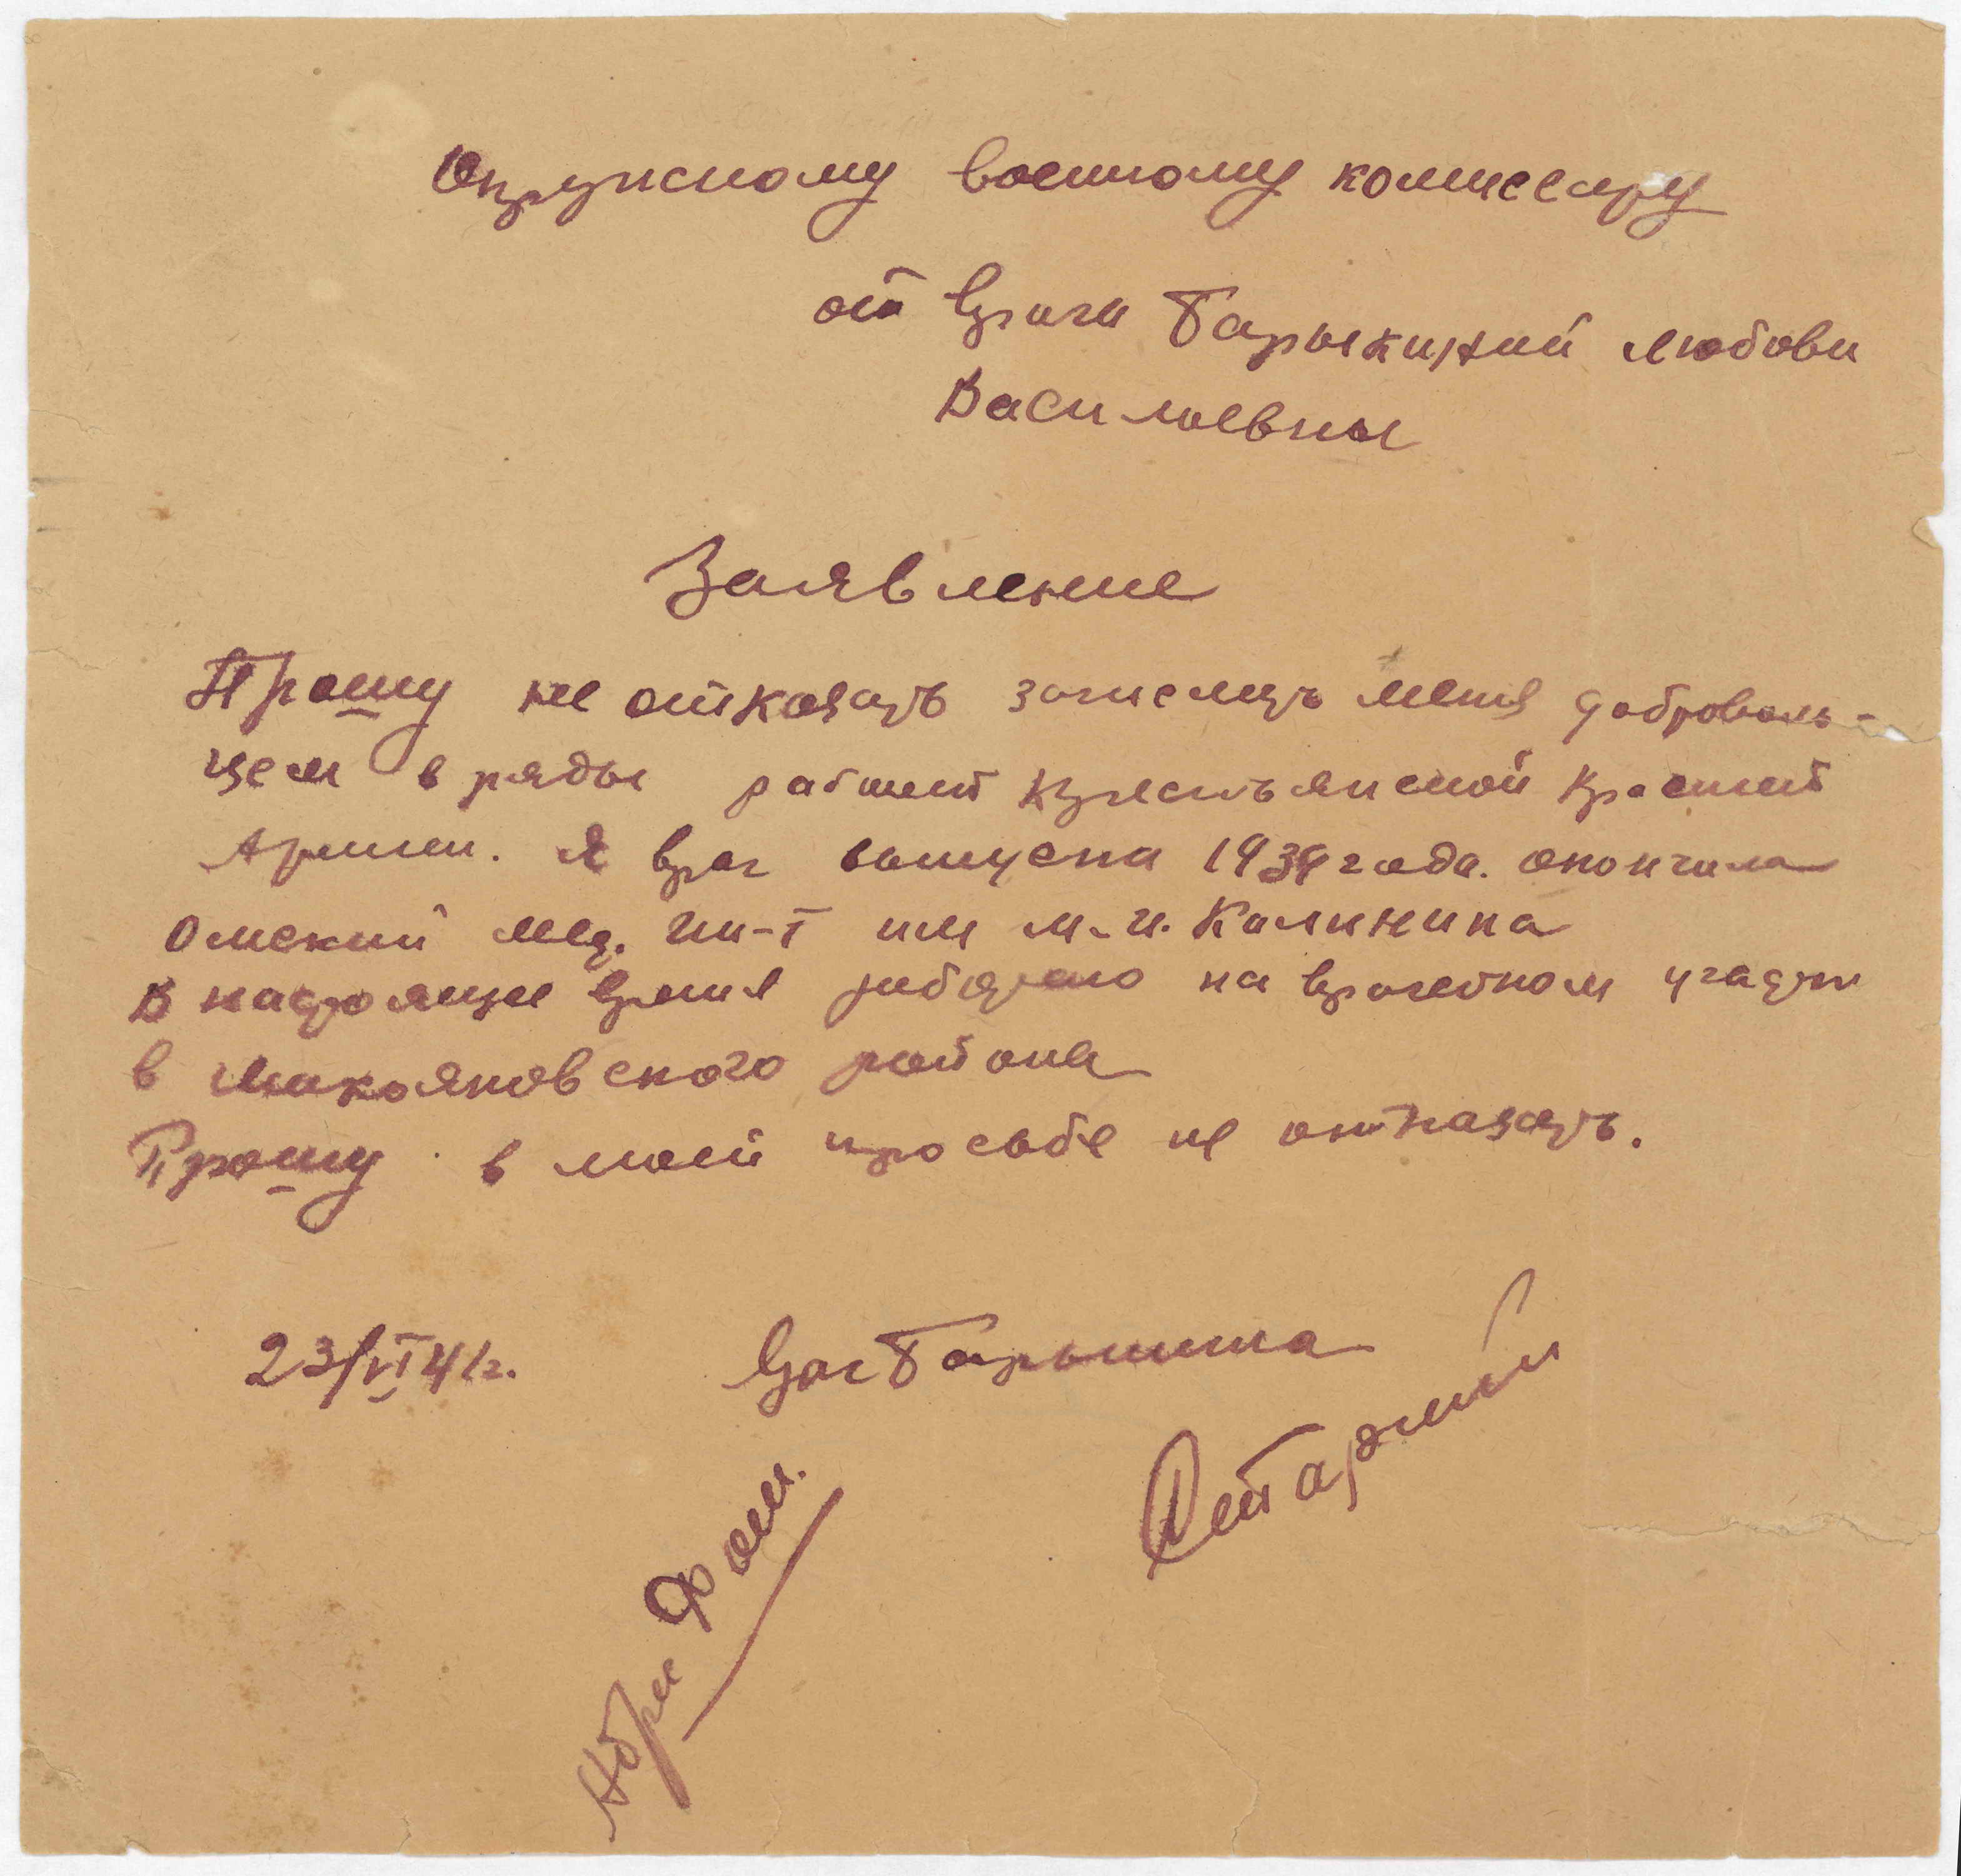 Окружному военному комиссару
от врача Барыкиной Любови
Васильевны
Заявление
Прошу не отказать зачислить меня доброволь-
цем в ряды рабочей крестьянской красной
Армии. Я врач выпуска 1939 года. окончила
Омский мед. ин-т им М.И. Калинина
В настоящее время работаю на врачебном участке
в Микояновского района
Прошу в моей просьбе не отказать.
23/VI 41г.
Врач Барыкина